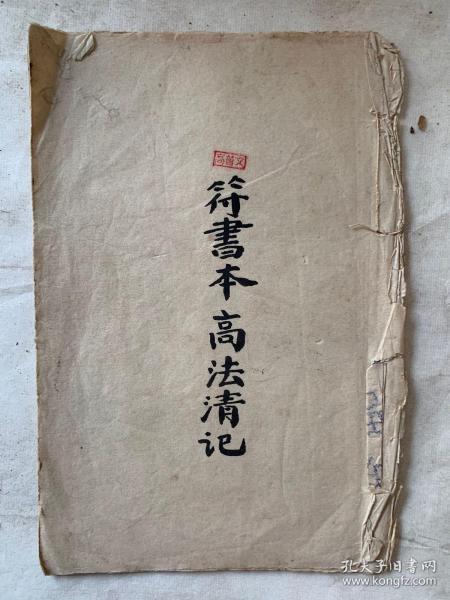 符書本高法清记
孔夫子旧书网
www.kongfz.com